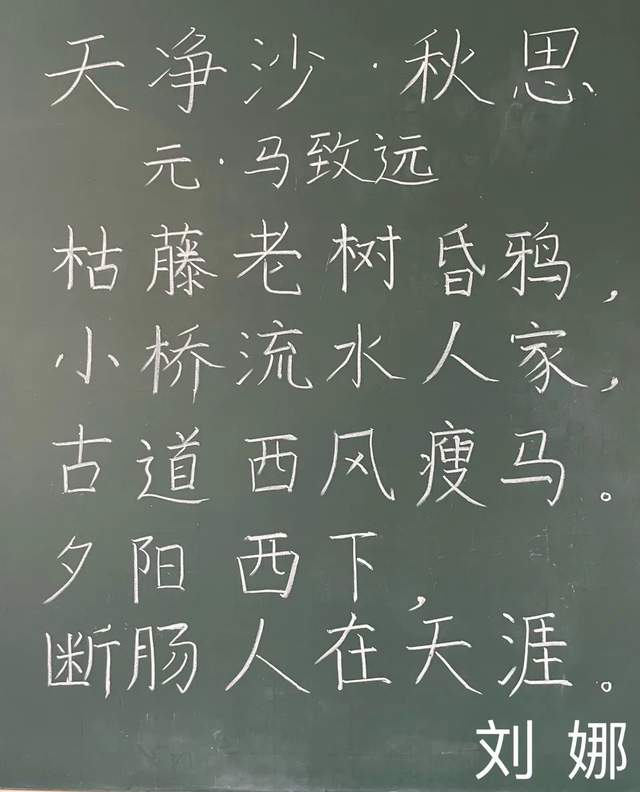 天净沙·秋思
元·马致远
枯藤老树昏鸦，
小桥流水人家，
古道西风瘦马。
夕阳西下，
断肠人在天涯。
刘娜